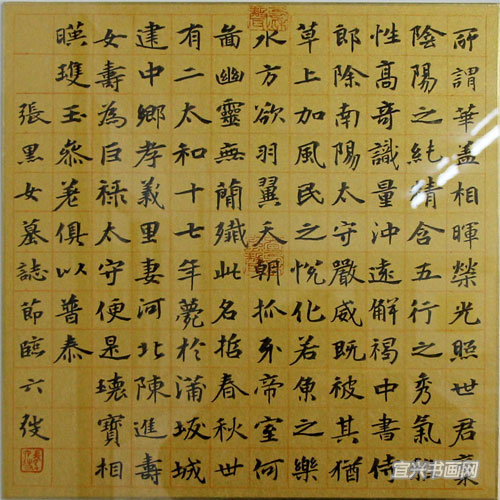 所謂華盖相暉榮光照世君稟
陰陽之純精含五行之秀氣雅
性高奇識量沖遠解褐中書侍
郎除南陽太守嚴威既被其猶
草上加風民之悅化若魚之樂
水方欲羽翼天朝抓牙帝室何
啚幽靈無簡殲此名悊春秋卅
有二太和十七年薨於蒲坂城
建中鄉孝義里妻河北陳進壽
女壽為巨祿太守便是瓌寶相
暎瓊玉參差俱以普泰
張黑女墓誌節臨六
宜兴书画网